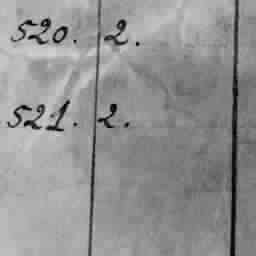 520. 2.
521. 2.